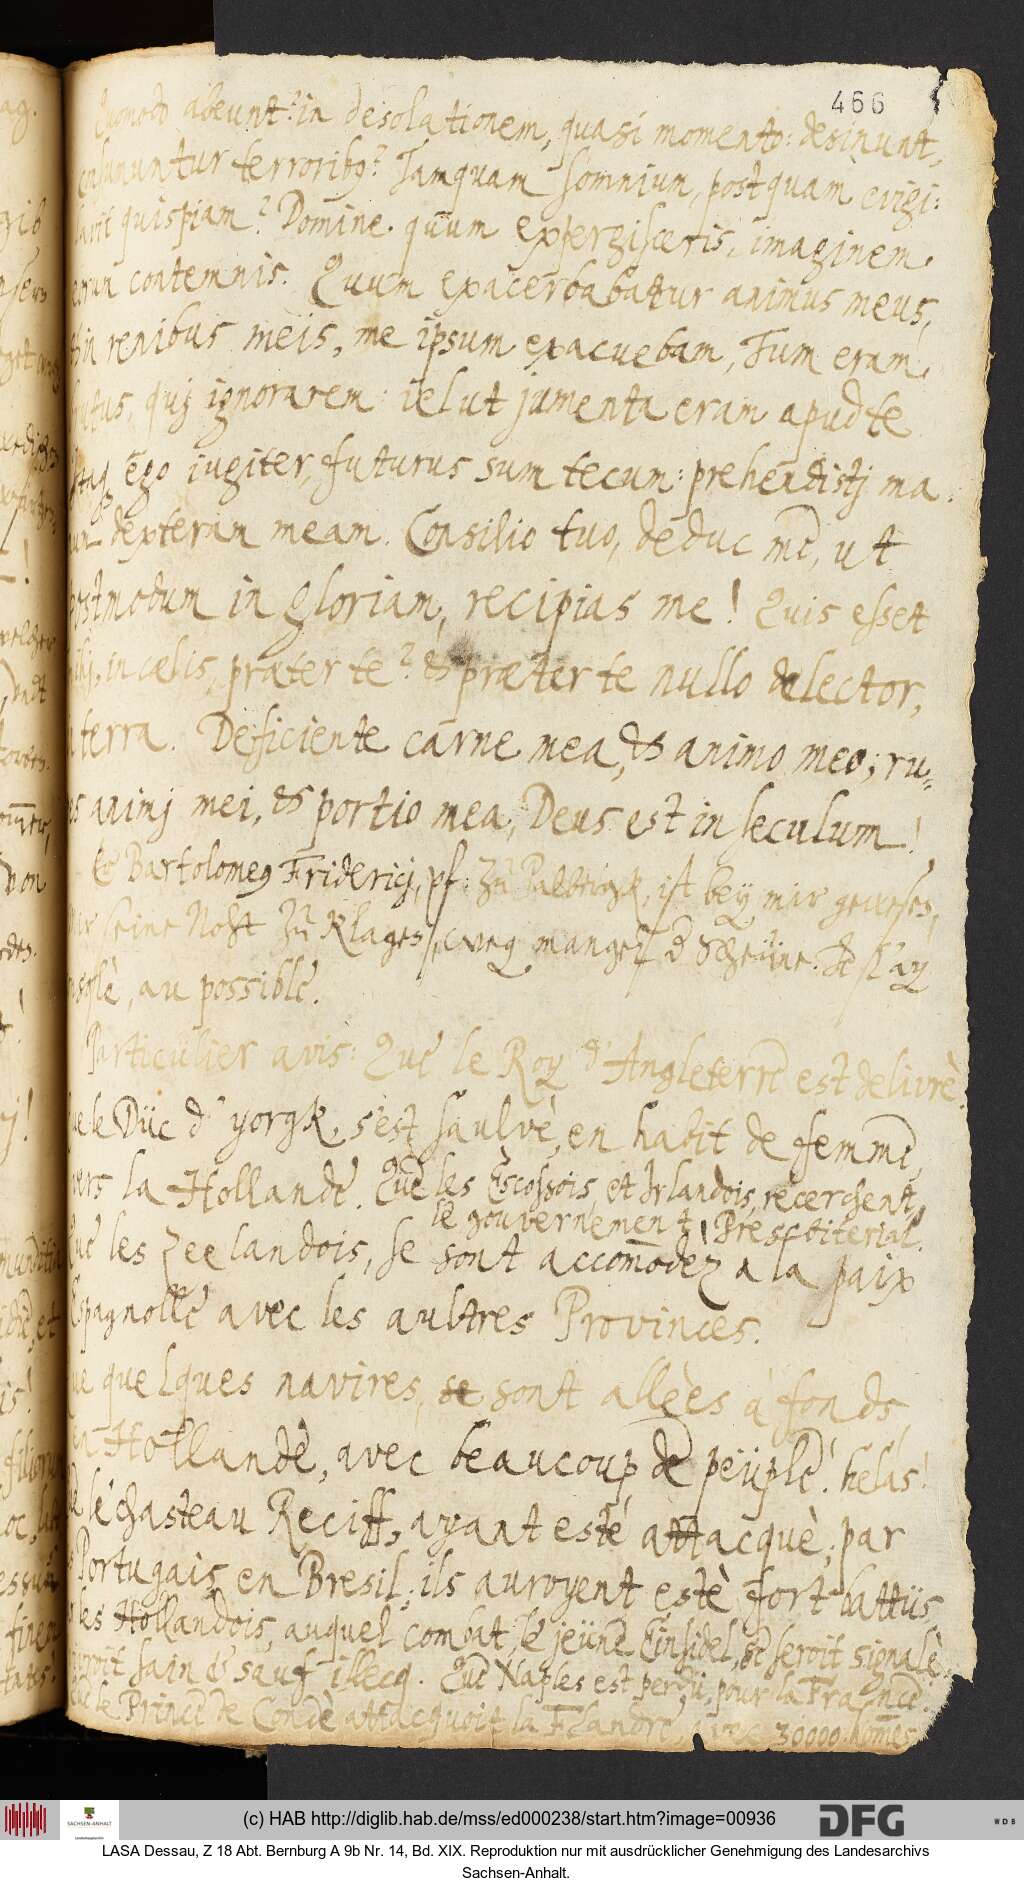 466
Quomodo abeunt? in desolationem, quasi momento: desinunt,
consumuntur terroribus? Tamquam somnium, postquam evigi:
lavit quispiam? Domine quum expergisceris, imaginem
eorum contemnis. Quum exacerbabattur animus meus,
& in renibus meis, me ipsum exacuebam, Tum eram
brutus, quj ignorarem: velut jumenta eram apud te
Itaq ego jugiter, futurus sum tecum: prehendistj ma
num dexteram meam. Consilio tuo, deduc me, ut
postmodum in gloriam, recipias me! Quis esset
mihj, in cælis, præter te? & præter te nullo delector,
in terra. Deficiente carne mea, & animo meo; ru„
pes animj mei, & portio mea, Deus est in seculum!
Er Bartolomeg Fridericj, pf: zu Palbrigk, ist bey mir gewesen,
mir seine Noht zu klagen, weg mangel der Scheüne. Je l'ay
consolè, au possible.
Particulier avis: Que le Roy d'Angleterre est delivrè.
Que le Düc d'yorgk, s'est saulvè, en habit de femme,
vers la Hollande. Que les Escossois et Irlandois, recerchent,
le gouvernement Presbiterial.
Que les Zeelandois, se sont accommodèz a la paix
Espagnolle avec les aultres Provinces.
Que quelques navires, se sont allèes à fonds,
en Hollandè, avec beaucoup de peüple! helas!
Que le chasteau Reciff, ayant estè attacquè, par
les Portugais en Bresil, ils auroyent estè fort battüs
par les Hollandois, auquel combat, le jeüne Einsidel, se seroit signalè.
seroit sain & sauf illecq. Que Naples est perdü, pour la France.
Que le Prince de Condè attacquoit la Flandre, avec 30000 hommes
(c) HAB http://diglib.hab.de/mss/ed000238/start.htm?image=00936
SACHSEN-ANHALT
DFG
WDB
LASA Dessau, Z 18 Abt. Bernburg A 9b Nr. 14, Bd. XIX. Reproduktion nur mit ausdrücklicher Genehmigung des Landesarchivs
Sachsen-Anhalt.